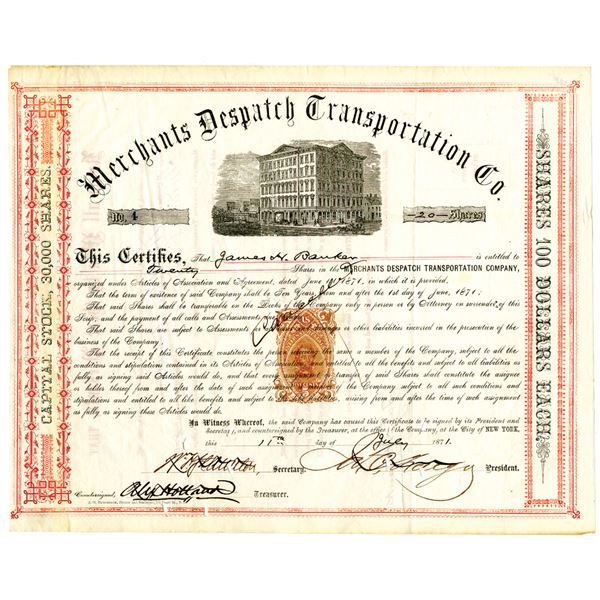 Merchants Despatch Transportation Co.
CAPITAL STOCK, 30,000 SHARES.
SHARES 100 DOLLARS EACH.
No. 4
-20- Shares
This Certifies, That James H. Banker is entitled to
Twenty Shares in the MERCHANTS DESPATCH TRANSPORTATION COMPANY,
organized under Articles of Association and Agreement, dated June 1st 1871, in which it is provided,
That the term of existence of said Company shall be Ten Years from and after the 1st day of June, 1871:
That said Shares shall be transferable on the Books of the Company only in person or by Attorney on surrender of this
Scrip; and the payment of all calls and Assessments
That said Shares are subject to Assessments for losses and damages or other liabilities incurred in the prosecution of the
business of the Company.
That the receipt of this Certificate constitutes the person receiving the same a member of the Company, subject to all the
conditions and stipulations contained in its Articles of Association, and entitled to all the benefits and subject to all liabilities as
fully as signing said Articles would do, and that every assignment or transfer of said Shares shall constitute the assignee or
holder thereof from and after the date of such assignment a member of the Company subject to all such conditions and
stipulations and entitled to all like benefits and subject to like liabilities, arising from and after the time of such assignment
as fully as signing these Articles would do.
In Witness Whereof, the said Company has caused this Certificate to be signed by its President and
Secretary, and countersigned by the Treasurer, at the office of the Company, at the City of NEW YORK,
this 11th day of July 1871.
Secretary.
President.
Countersigned, Alex Holland
Treasurer.